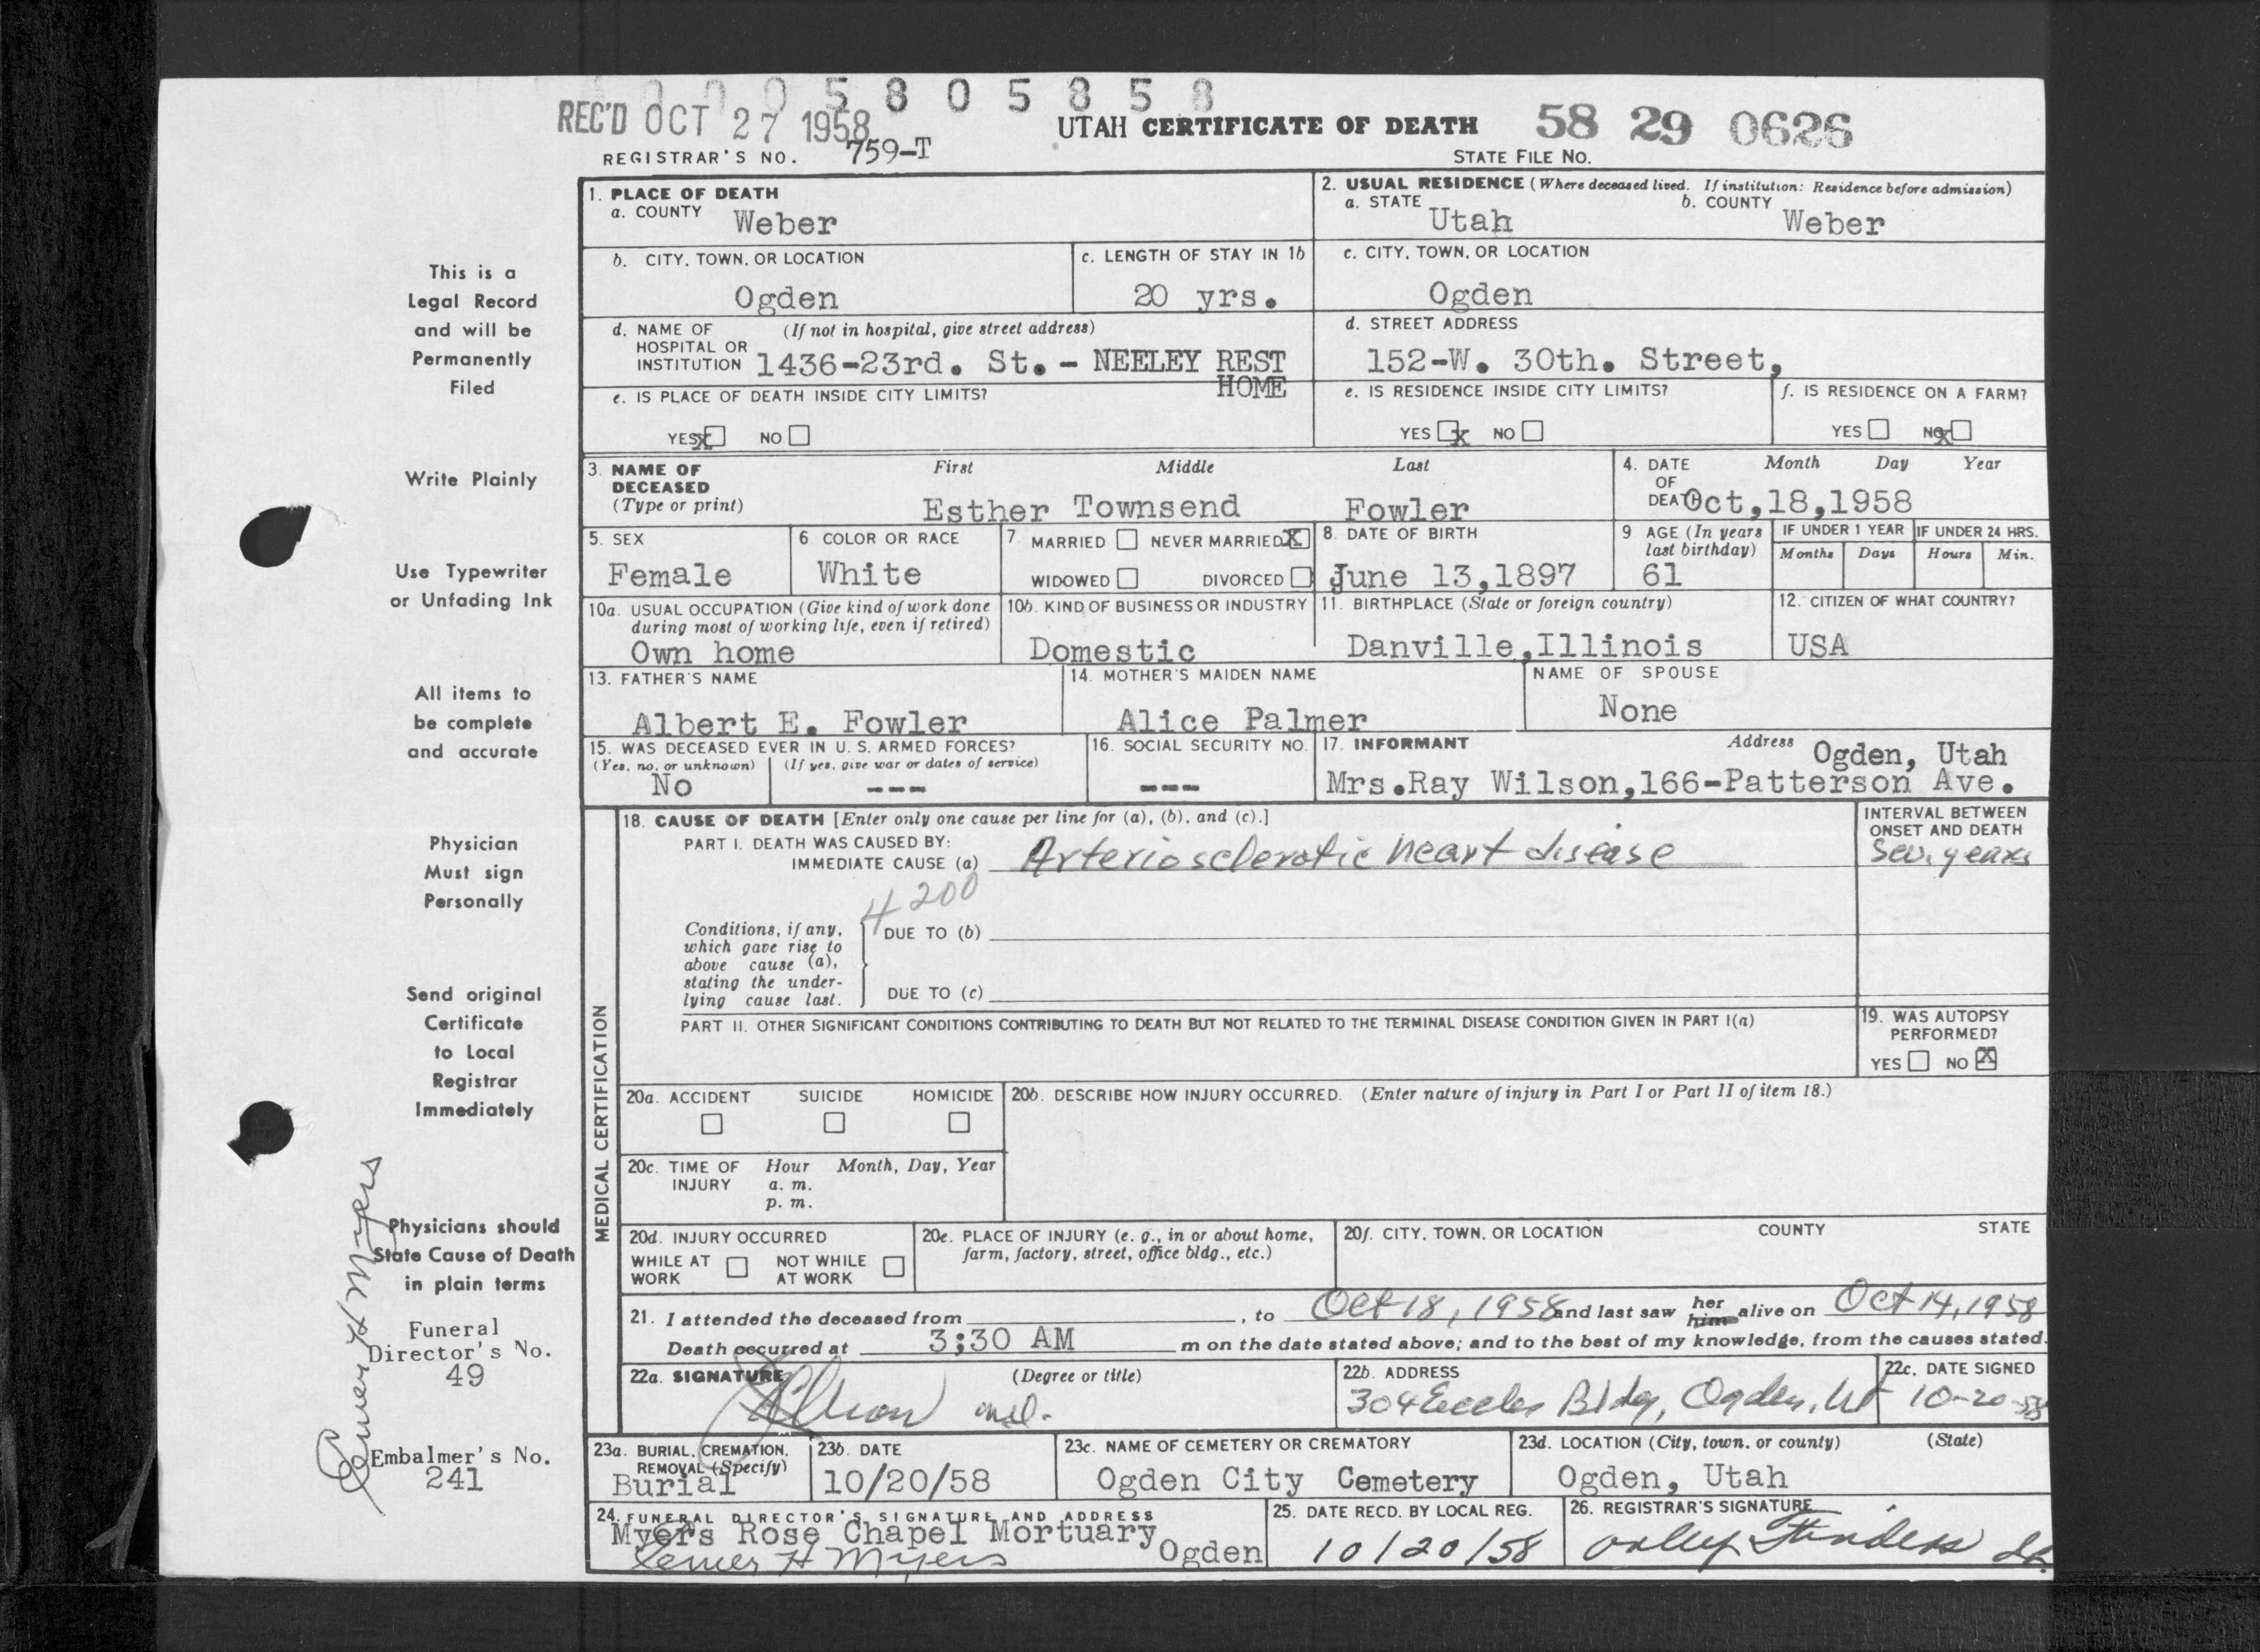 0 0 0 5 8 0 5 8 5 8
REC'D OCT 27 1958
UTAH CERTIFICATE OF DEATH 58 29 0626
REGISTRAR'S NO. 759-T
STATE FILE NO.
1. PLACE OF DEATH
a. COUNTY Weber
2. USUAL RESIDENCE (Where deceased lived. If institution: Residence before admission)
a. STATE Utah b. COUNTY Weber
b. CITY, TOWN, OR LOCATION
Ogden
c. LENGTH OF STAY IN 1b
20 yrs.
c. CITY, TOWN, OR LOCATION
Ogden
d. NAME OF (If not in hospital, give street address)
HOSPITAL OR
INSTITUTION 1436-23rd. St. - NEELEY REST
HOME
d. STREET ADDRESS
152-W. 30th. Street,
e. IS PLACE OF DEATH INSIDE CITY LIMITS?
YES X NO
e. IS RESIDENCE INSIDE CITY LIMITS?
YES X NO
f. IS RESIDENCE ON A FARM?
YES NO X
3. NAME OF DECEASED
(Type or print)
First Middle Last
Esther Townsend Fowler
4. DATE OF DEATH
Month Day Year
Oct,18,1958
5. SEX
Female
6 COLOR OR RACE
White
7. MARRIED NEVER MARRIED X
WIDOWED DIVORCED
8. DATE OF BIRTH
June 13,1897
9 AGE (In years last birthday)
61
IF UNDER 1 YEAR
Months Days
IF UNDER 24 HRS.
Hours Min.
10a. USUAL OCCUPATION (Give kind of work done
during most of working life, even if retired)
Own home
10b. KIND OF BUSINESS OR INDUSTRY
Domestic
11. BIRTHPLACE (State or foreign country)
Danville,Illinois
12. CITIZEN OF WHAT COUNTRY?
USA
13. FATHER'S NAME
Albert E. Fowler
14. MOTHER'S MAIDEN NAME
Alice Palmer
NAME OF SPOUSE
None
15. WAS DECEASED EVER IN U. S. ARMED FORCES?
(Yes, no, or unknown) (If yes, give war or dates of service)
No ---
16. SOCIAL SECURITY NO.
---
17. INFORMANT Address Ogden, Utah
Mrs.Ray Wilson,166-Patterson Ave.
MEDICAL CERTIFICATION
18. CAUSE OF DEATH [Enter only one cause per line for (a), (b), and (c).]
PART I. DEATH WAS CAUSED BY:
IMMEDIATE CAUSE (a) Arteriosclerotic heart disease
INTERVAL BETWEEN
ONSET AND DEATH
Sev. years
4200
Conditions, if any,
which gave rise to
above cause (a),
stating the under-
lying cause last.
DUE TO (b)
DUE TO (c)
PART II. OTHER SIGNIFICANT CONDITIONS CONTRIBUTING TO DEATH BUT NOT RELATED TO THE TERMINAL DISEASE CONDITION GIVEN IN PART I(a)
19. WAS AUTOPSY
PERFORMED?
YES NO X
20a. ACCIDENT SUICIDE HOMICIDE
20b. DESCRIBE HOW INJURY OCCURRED. (Enter nature of injury in Part I or Part II of item 18.)
20c. TIME OF INJURY
Hour Month, Day, Year
a. m.
p. m.
20d. INJURY OCCURRED
WHILE AT WORK NOT WHILE AT WORK
20e. PLACE OF INJURY (e. g., in or about home,
farm, factory, street, office bldg., etc.)
20f. CITY, TOWN, OR LOCATION COUNTY STATE
21. I attended the deceased from , to Oct 18, 1958 and last saw her him alive on Oct 14, 1958
Death occurred at 3:30 AM m on the date stated above; and to the best of my knowledge, from the causes stated.
22a. SIGNATURE (Degree or title)
md.
22b. ADDRESS
304 Eccles Bldg, Ogden, Ut
22c. DATE SIGNED
10-20-58
23a. BURIAL, CREMATION,
REMOVAL (Specify)
Burial
23b. DATE
10/20/58
23c. NAME OF CEMETERY OR CREMATORY
Ogden City Cemetery
23d. LOCATION (City, town, or county) (State)
Ogden, Utah
24. FUNERAL DIRECTOR'S SIGNATURE AND ADDRESS
Myers Rose Chapel Mortuary
Ogden
Elmer H Myers
25. DATE RECD. BY LOCAL REG.
10/20/58
26. REGISTRAR'S SIGNATURE
This is a
Legal Record
and will be
Permanently
Filed
Write Plainly
Use Typewriter
or Unfading Ink
All items to
be complete
and accurate
Physician
Must sign
Personally
Send original
Certificate
to Local
Registrar
Immediately
Physicians should
State Cause of Death
in plain terms
Funeral
Director's No.
49
Embalmer's No.
241
Elmer H Myers